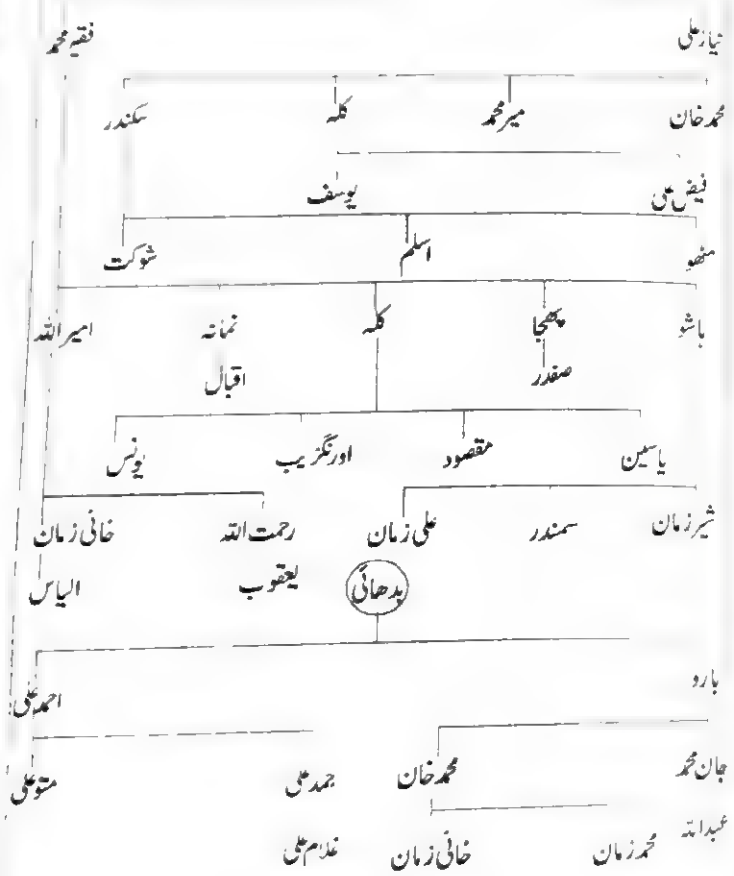 نیاز علی فقیر محمد
محمد خان میر محمد کلہ سکندر
فیض علی یوسف
منھو اسلم شوکت
باشو پھجا کلہ نمانہ امیر اللہ
صفدر اقبال
یاسین مقصود اورنگزیب یونس
شیر زمان سمندر علی زمان رحمت اللہ خانی زمان
بدھائی یعقوب الیاس
بارو احمد علی
جان محمد محمد خان جمد علی متو علی
عبداللہ محمد زمان خانی زمان غلام علی